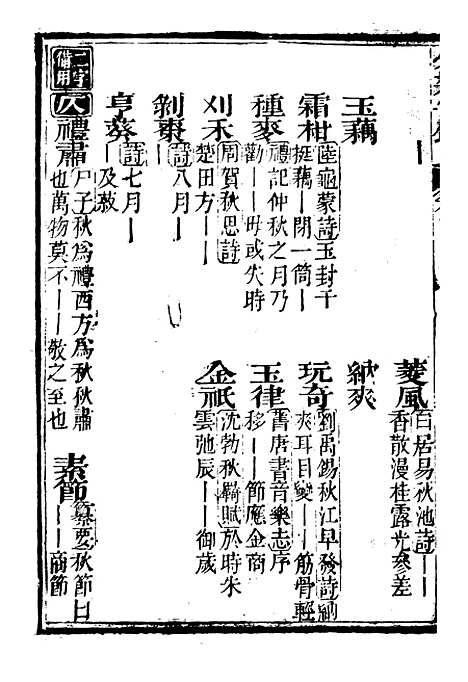 菱風 百居易秋池詩｜｜
香散漫桂露光參差
玉藕 納爽
霜柑 陸龜蒙詩玉封千
挺藕｜閉一筒｜
玩奇 劉禹錫秋江早發詩納
爽耳目變｜｜筋骨輕
種麥 禮記仲秋之月乃
勸｜｜毋或失時
玉律 舊唐書音樂志序
移｜｜節應金商
刈禾 周賀秋思詩
楚田方｜｜
金祇 沈勃秋羇賦於時朱
雲弛辰｜｜御歲
剝棗 詩八月｜｜
亨葵 詩七月｜
｜及菽
二字備用 仄 禮肅 尸子秋爲禮西方爲秋秋肅
也萬物莫不｜｜敬之至也
素節 纂要秋節曰
｜｜商節